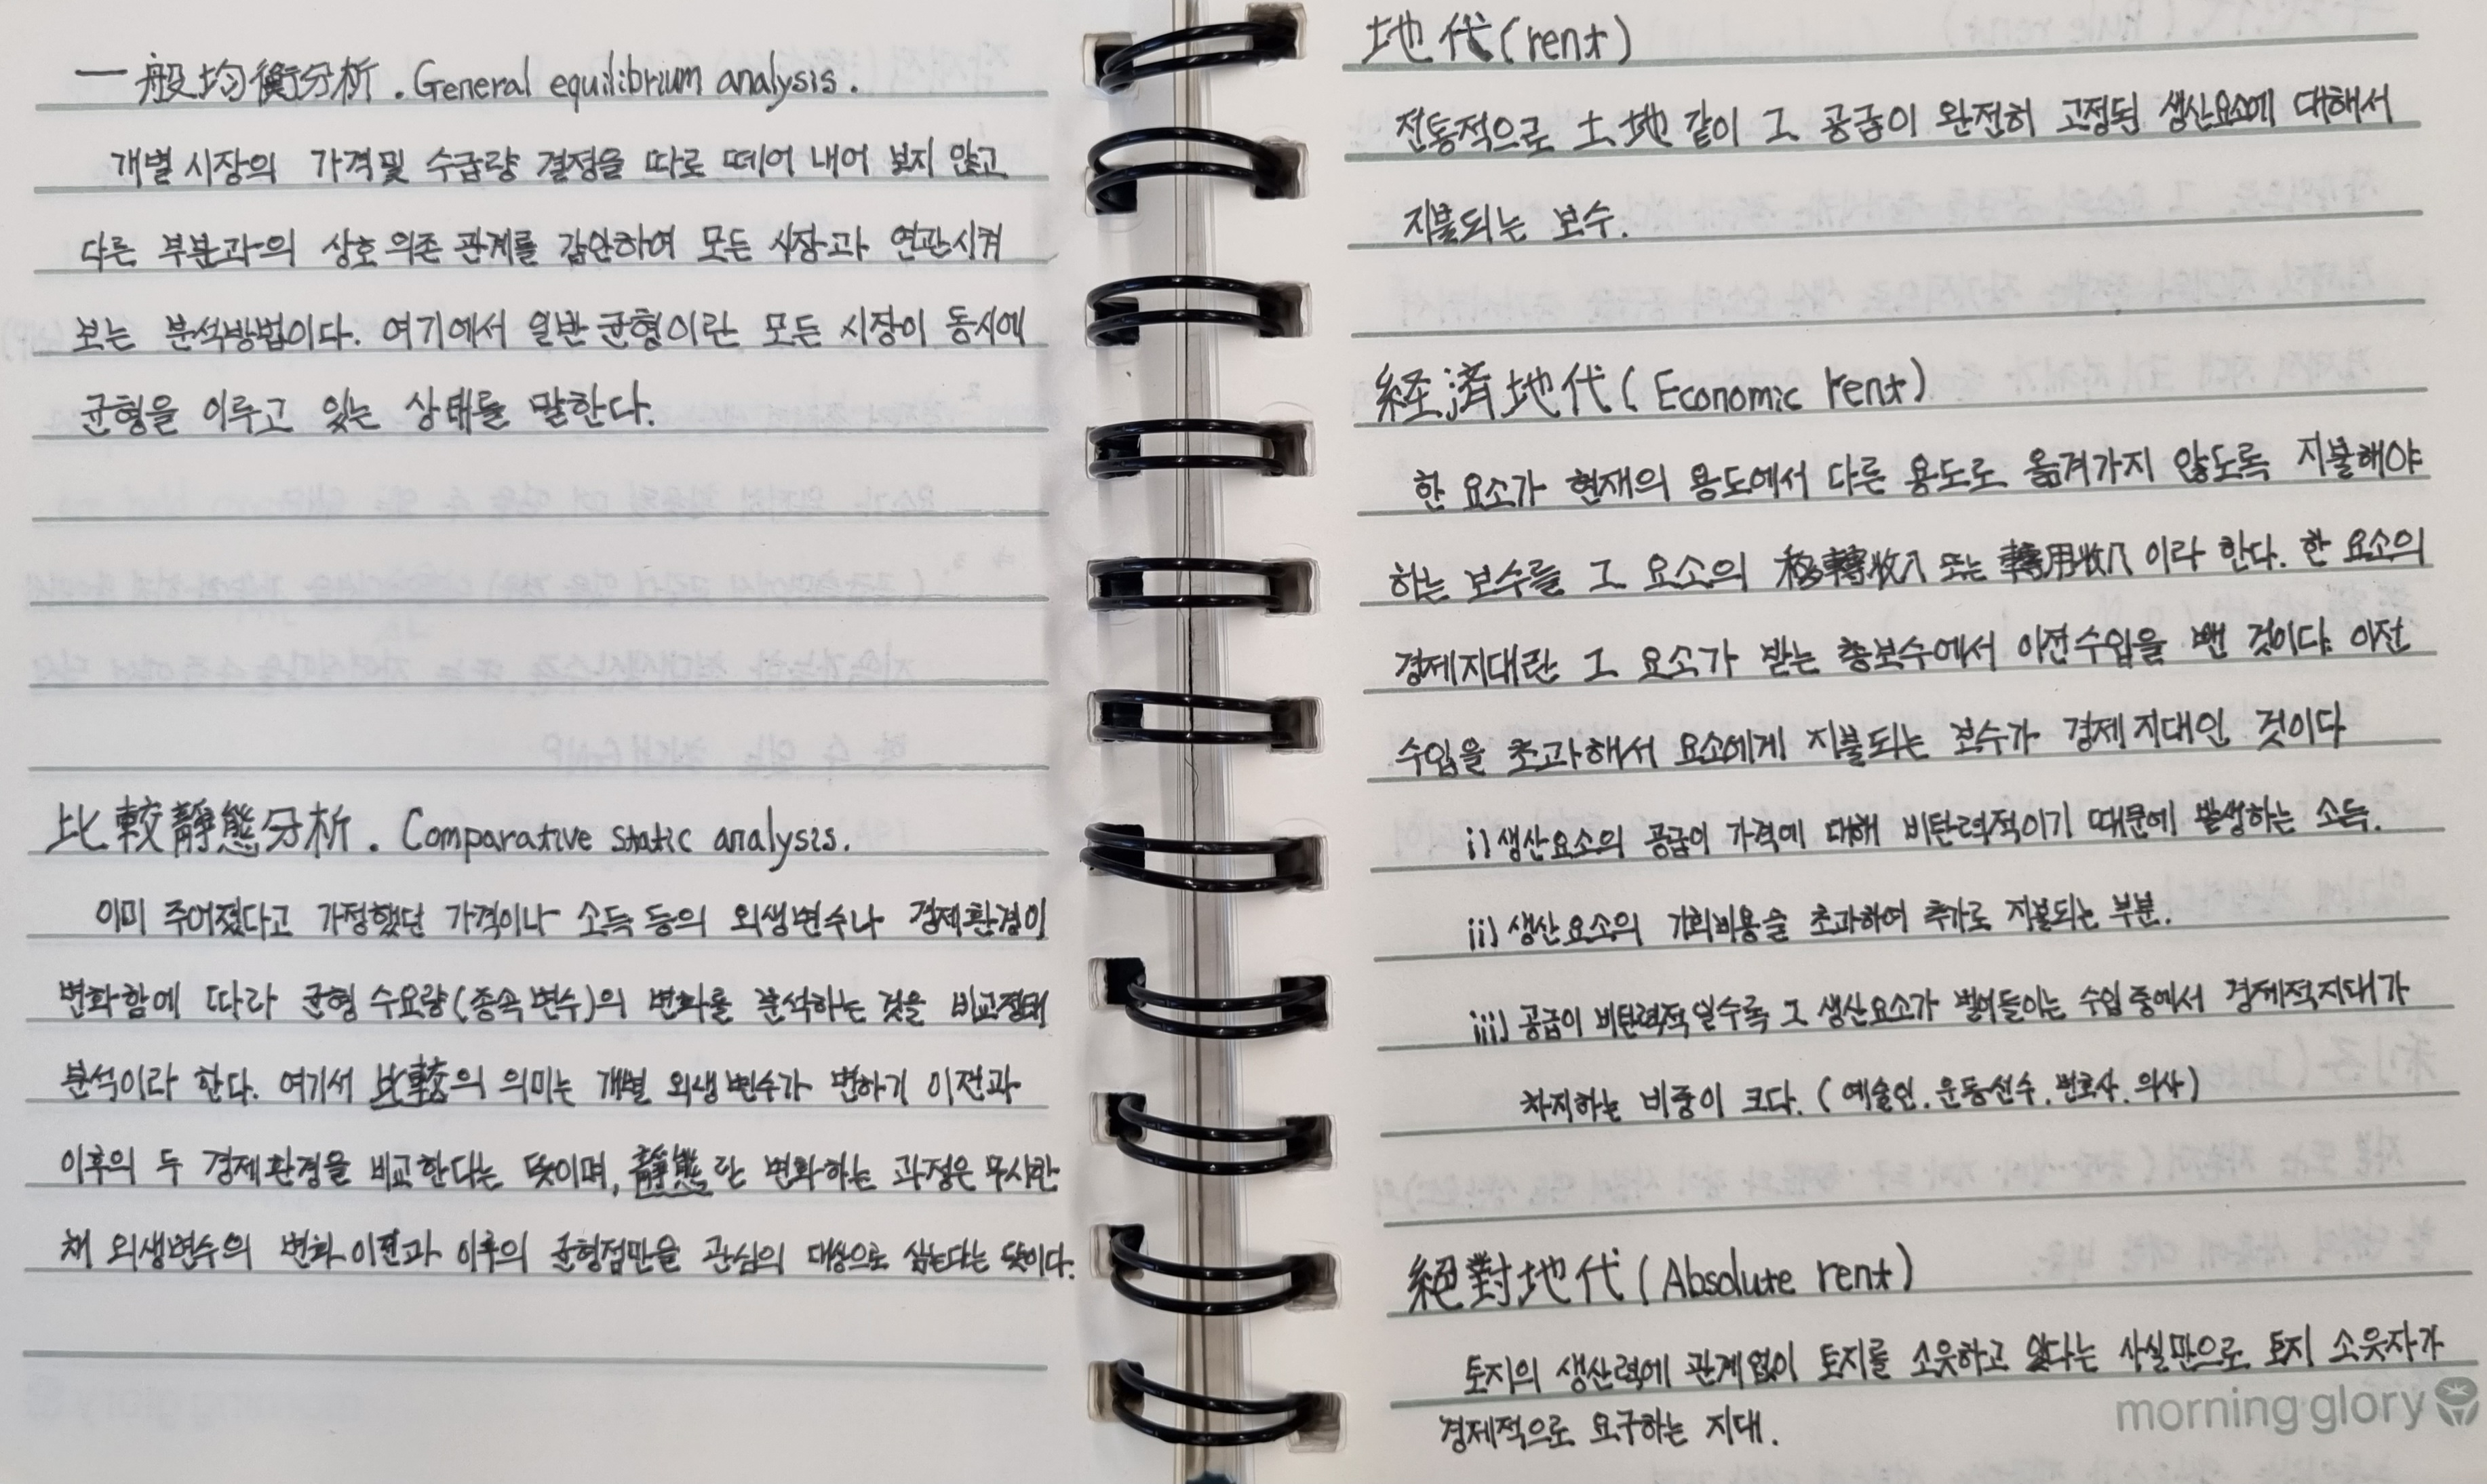 一般均衡分析. General equilibrium analysis.
개별 시장의 가격및 수급량 결정을 따로 떼어 내어 보지 않고
다른 부분과의 상호 의존 관계를 감안하여 모든 시장과 연관시켜
보는 분석방법이다. 여기에서 일반 균형이란 모든 시장이 동시에
균형을 이루고 있는 상태를 말한다.
比較靜態分析. Comparative static analysis.
이미 주어졌다고 가정했던 가격이나 소득 등의 외생변수나 경제환경이
변화함에 따라 균형 수요량(종속변수)의 변화를 분석하는 것을 비교정태
분석이라 한다. 여기서 比較의 의미는 개별 외생변수가 변하기 이전과
이후의 두 경제환경을 비교한다는 뜻이며, 靜態란 변화하는 과정은 무시한
채 외생변수의 변화 이전과 이후의 균형점만을 관심의 대상으로 삼는다는 뜻이다.
地代(rent)
전통적으로 土地 같이 그 공급이 완전히 고정된 생산요소에 대해서
지불되는 보수.
経済地代(Economic rent)
한 요소가 현재의 용도에서 다른 용도로 옮겨가지 않도록 지불해야
하는 보수를 그 요소의 移轉收入 또는 轉用收入 이라 한다. 한 요소의
경제지대란 그 요소가 받는 총보수에서 이전수입을 뺀 것이다. 이전
수입을 초과해서 요소에게 지불되는 보수가 경제지대인 것이다
i) 생산요소의 공급이 가격에 대해 비탄력적이기 때문에 발생하는 소득.
ii) 생산요소의 기회비용을 초과하여 추가로 지불되는 부분.
iii) 공급이 비탄력적일수록 그 생산요소가 벌어들이는 수입 중에서 경제적지대가
차지하는 비중이 크다. (예술인. 운동선수. 변호사. 의사)
絕對地代(Absolute rent)
토지의 생산력에 관계없이 토지를 소유하고 있다는 사실만으로 토지 소유자가
경제적으로 요구하는 지대.
morning glory